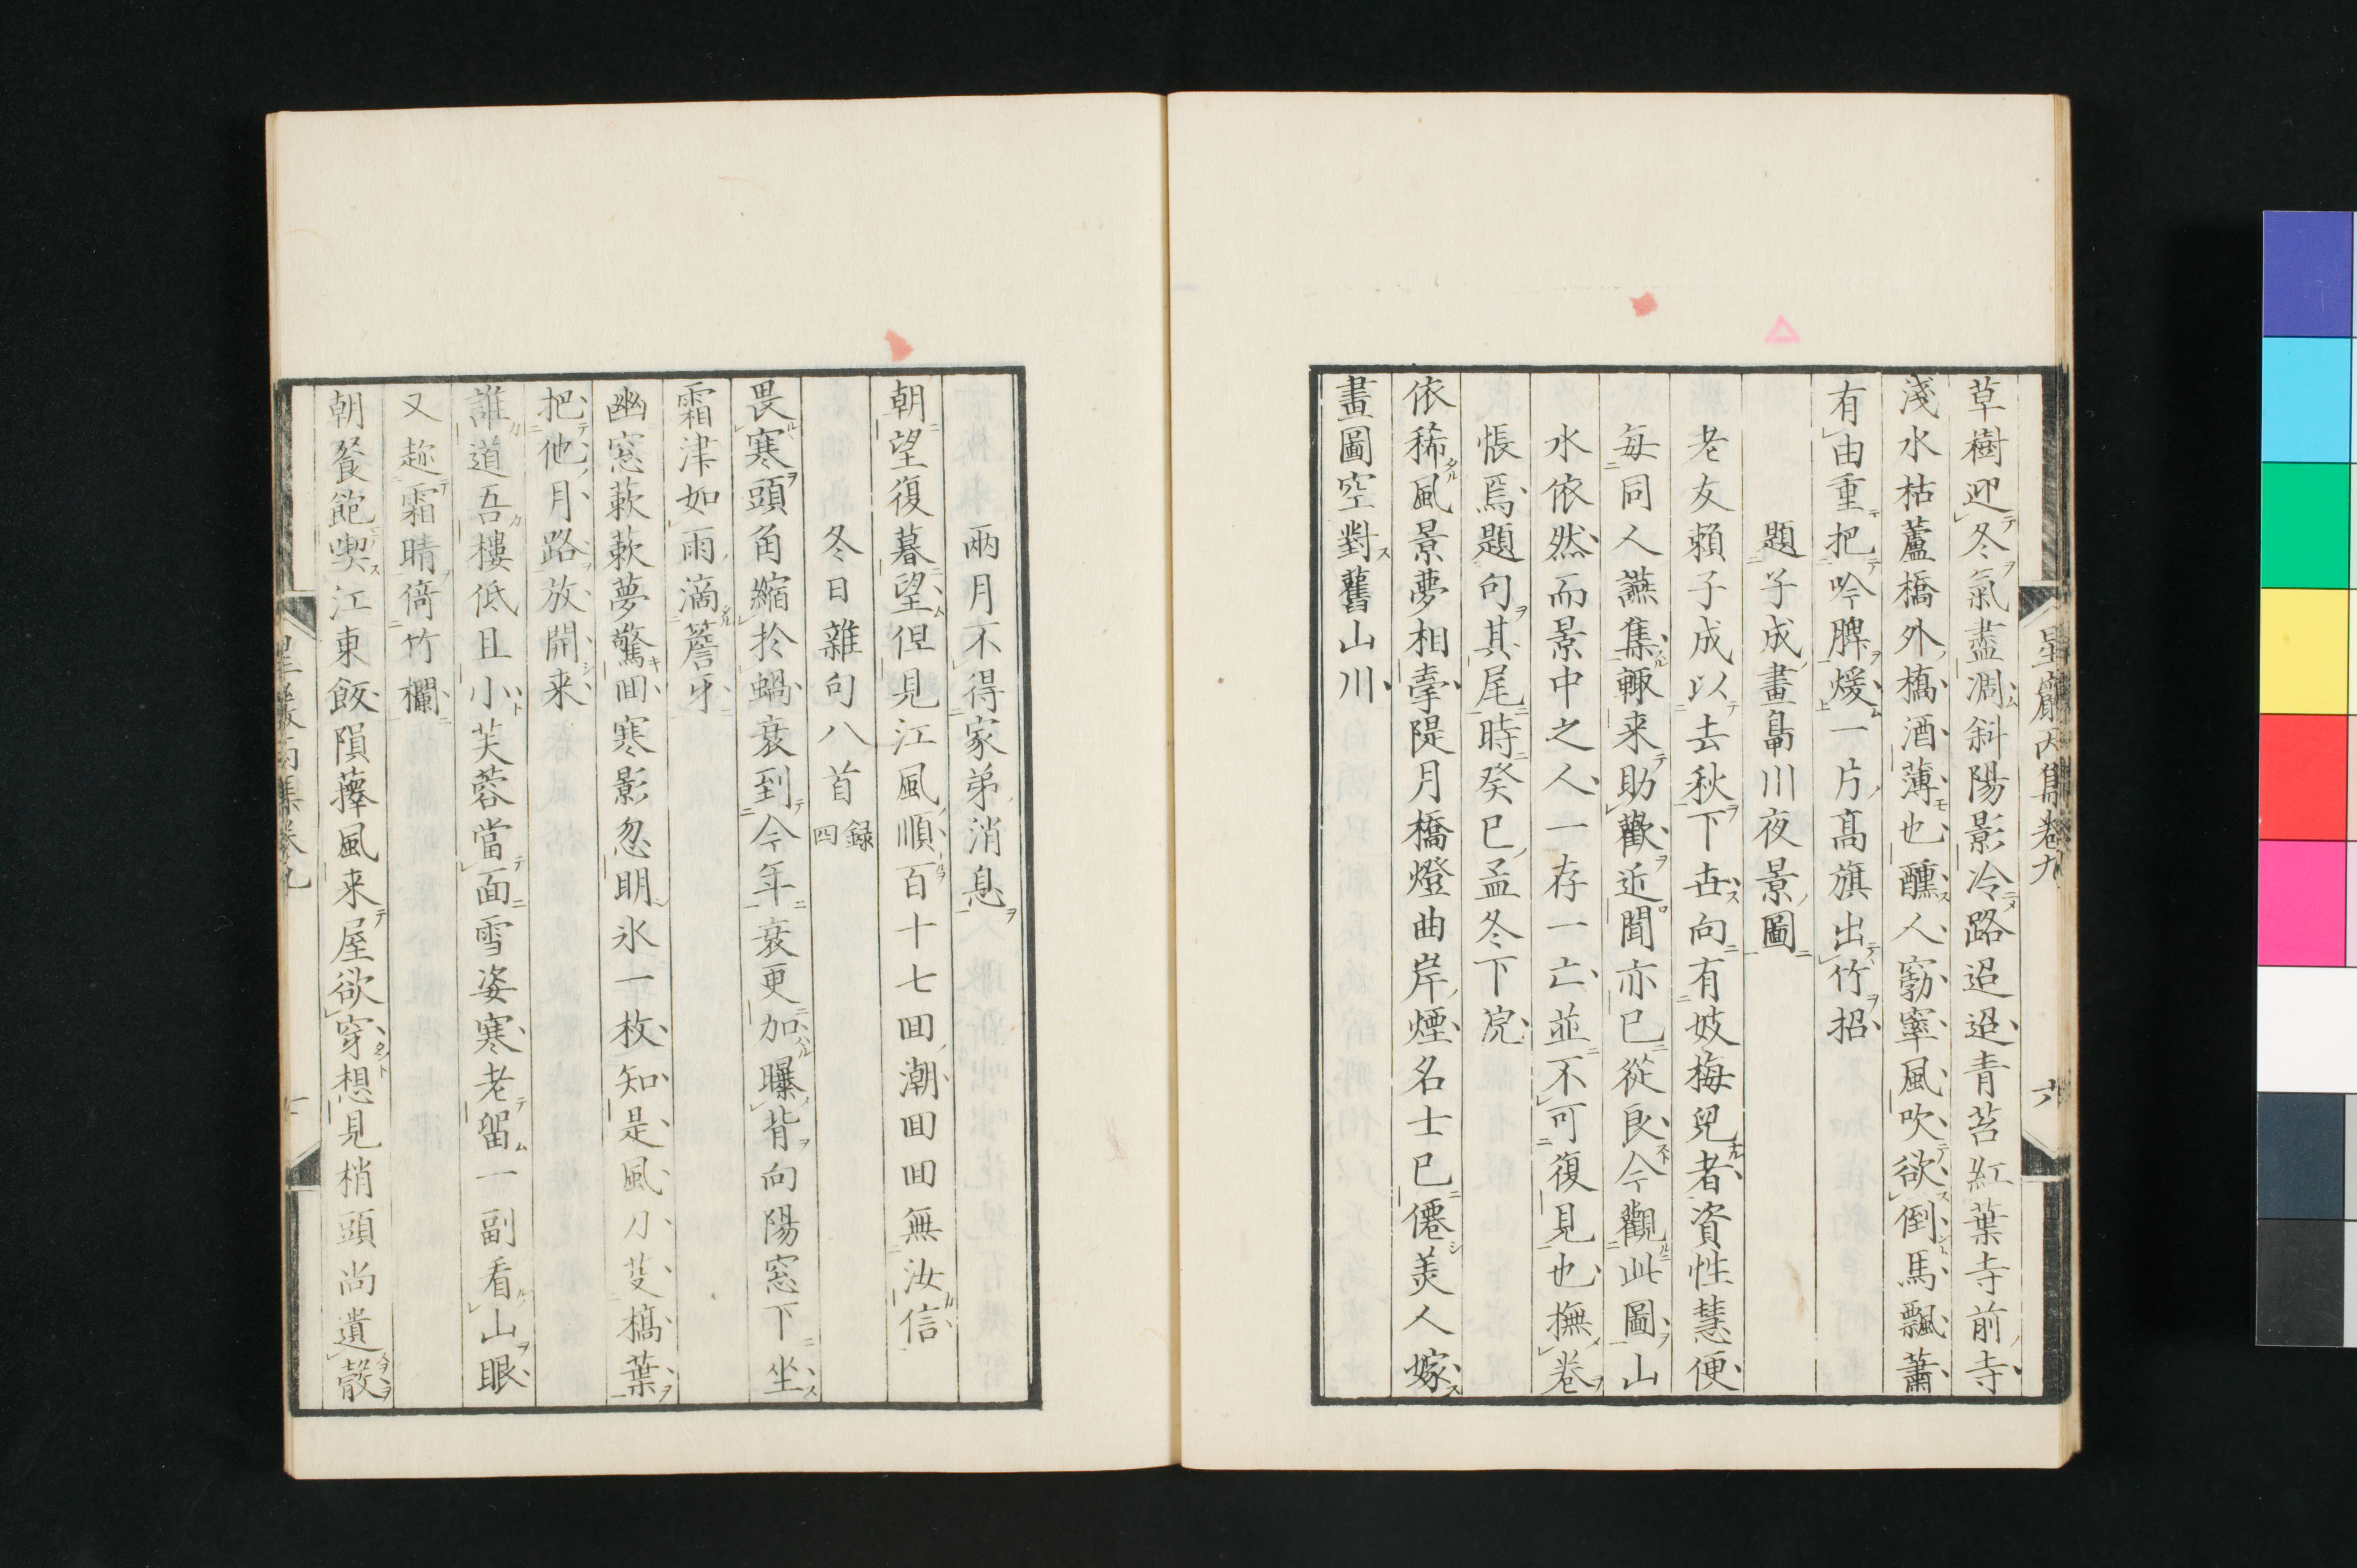 星巖丙集卷九
六
草樹迎冬氣盡凋斜陽影冷路迢迢青苔紅葉寺前寺
淺水枯蘆橋外橋酒薄也醺人勃窣風吹欲倒馬飄蕭
有由重把吟脾煖一片高旗出竹招
題子成畫鼻川夜景圖
老友賴子成以去秋下世向有妓梅兒者資性慧便
每同人讌集輙来助歡近聞亦已從良今觀此圖山
水依然而景中之人一存一亡並不可復見也撫卷
悵焉題句其尾時癸巳孟冬下浣
依稀風景夢相牽隄月橋燈曲岸煙名士已僊美人嫁
畫圖空對舊山川
兩月不得家弟消息
朝望復暮望但見江風順百十七回潮回回無汝信
冬日雜句八首 録四
畏寒頭角縮於蝸衰到今年衰更加曝背向陽窓下坐
霜津如雨滴簷牙
幽窓蔌蔌夢驚回寒影忽明氷一枚知是風小芟槁葉
把他月路放開来
誰道吾樓低且小芙蓉當面雪姿寒老留一副看山眼
又趂霜晴倚竹欄
朝餐飽喫江東飯隕蘀風来屋欲穿想見梢頭尚遺㲉
星巖丙集卷九
七